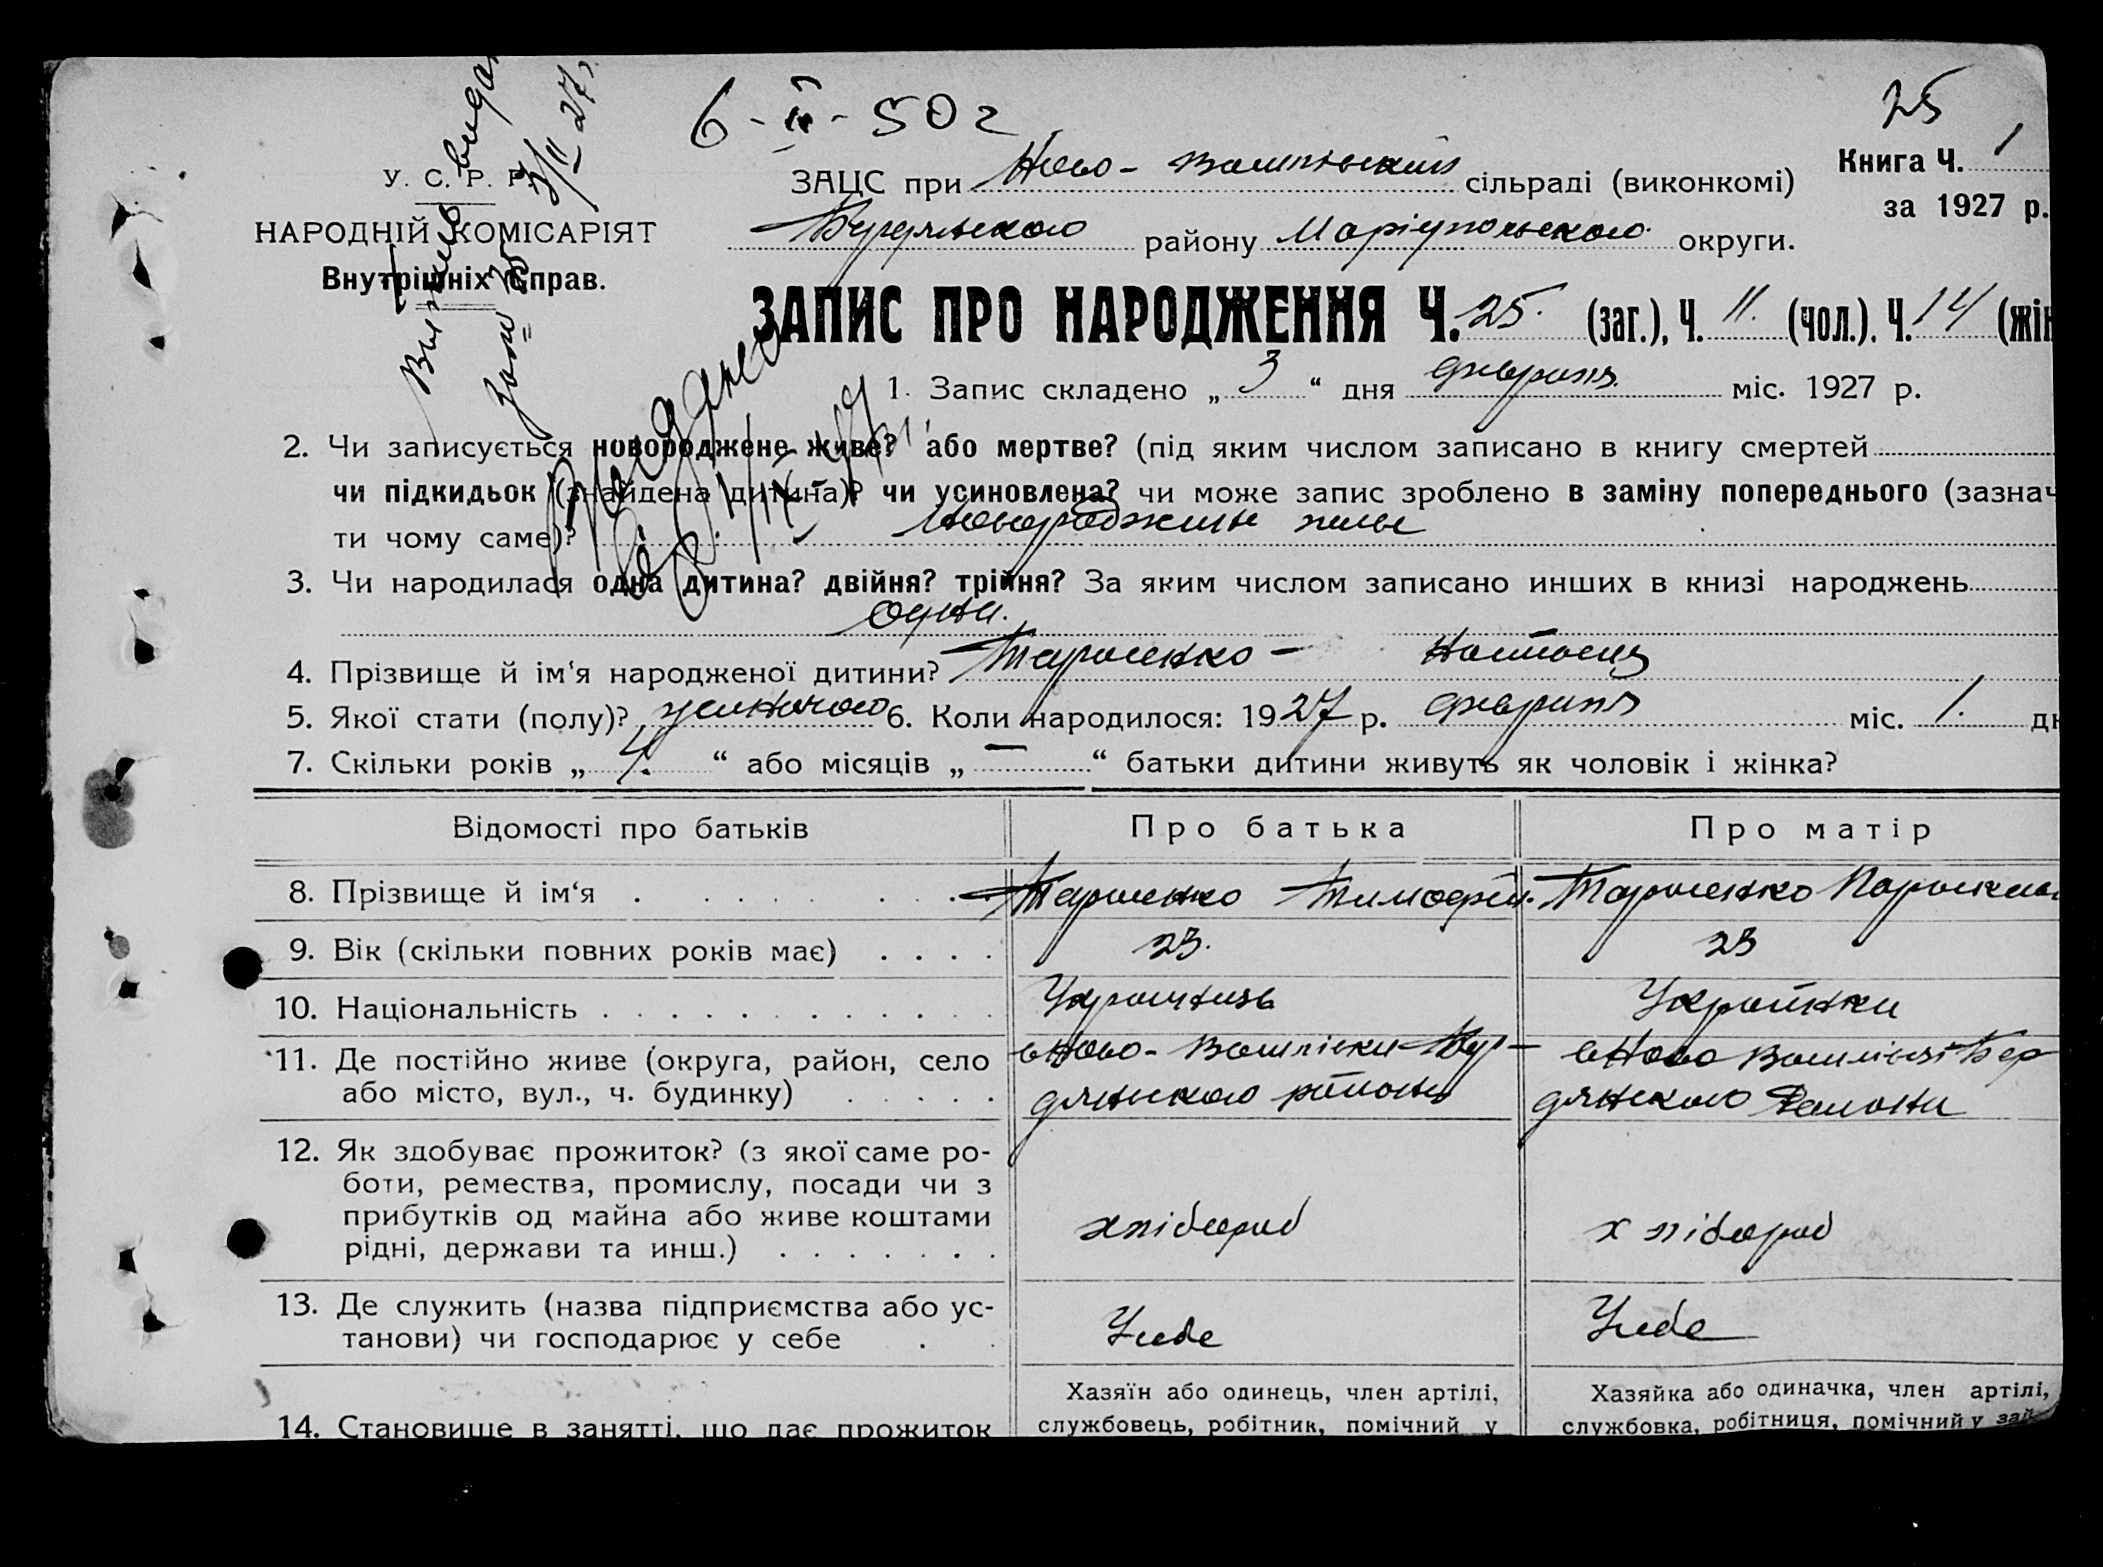 25
6-II-50 г
У. С. Р. Р.
НАРОДНІЙ КОМІСАРІЯТ
Внутрішніх Справ.
Виписка видан
3/II 27
Видано
ЗАЦС при Ново- Василівський сільраді (виконкомі)
Бердянського району Маріупольського округи.
Книга Ч. 1
за 1927 р.
ЗАПИС ПРО НАРОДЖЕННЯ Ч. 25. (заг.), Ч. 11. (чол.), Ч. 14 (жін
1. Запис складено „ 3 “ дня міс. 1927 р.
2. Чи записується новороджене живе? або мертве? (під яким числом записано в книгу смертей
чи підкидьок (знайдена дитина)? чи усиновлена? чи може запис зроблено в заміну попереднього (зазнач
ти чому саме)? новороджене живе
3. Чи народилася одна дитина? двійня? трійня? За яким числом записано инших в книзі народжень
одна.
4. Прізвище й ім‘я народженої дитини? Тарасенко -
5. Якої стати (полу)? жіночого 6. Коли народилося: 1927 р. міс. 1. дн
7. Скільки років „ 4. “ або місяців „ — “ батьки дитини живуть як чоловік і жінка?
Відомості про батьків
Про батька
Про матір
8. Прізвище й ім‘я
Тарасенко Тимофій.
Тарасенко
9. Вік (скільки повних років має)
23.
23
10. Національність
Українець
Українка
11. Де постійно живе (округа, район, село
або місто, вул., ч. будинку)
в Ново- Василівки Бер-
дянського району
в Ново Василівці Бер
дянського району
12. Як здобуває прожиток? (з якої саме ро-
боти, ремества, промислу, посади чи з
прибутків од майна або живе коштами
рідні, держави та инш.)
хлібороб
хлібороб
13. Де служить (назва підприємства або ус-
танови) чи господарює у себе
У себе
У себе
14. Становище в занятті, що дає прожиток
Хазяїн або одинець, член артілі,
службовець, робітник, помічний у
Хазяйка або одиначка, член артілі,
службовка, робітниця, помічний у зай